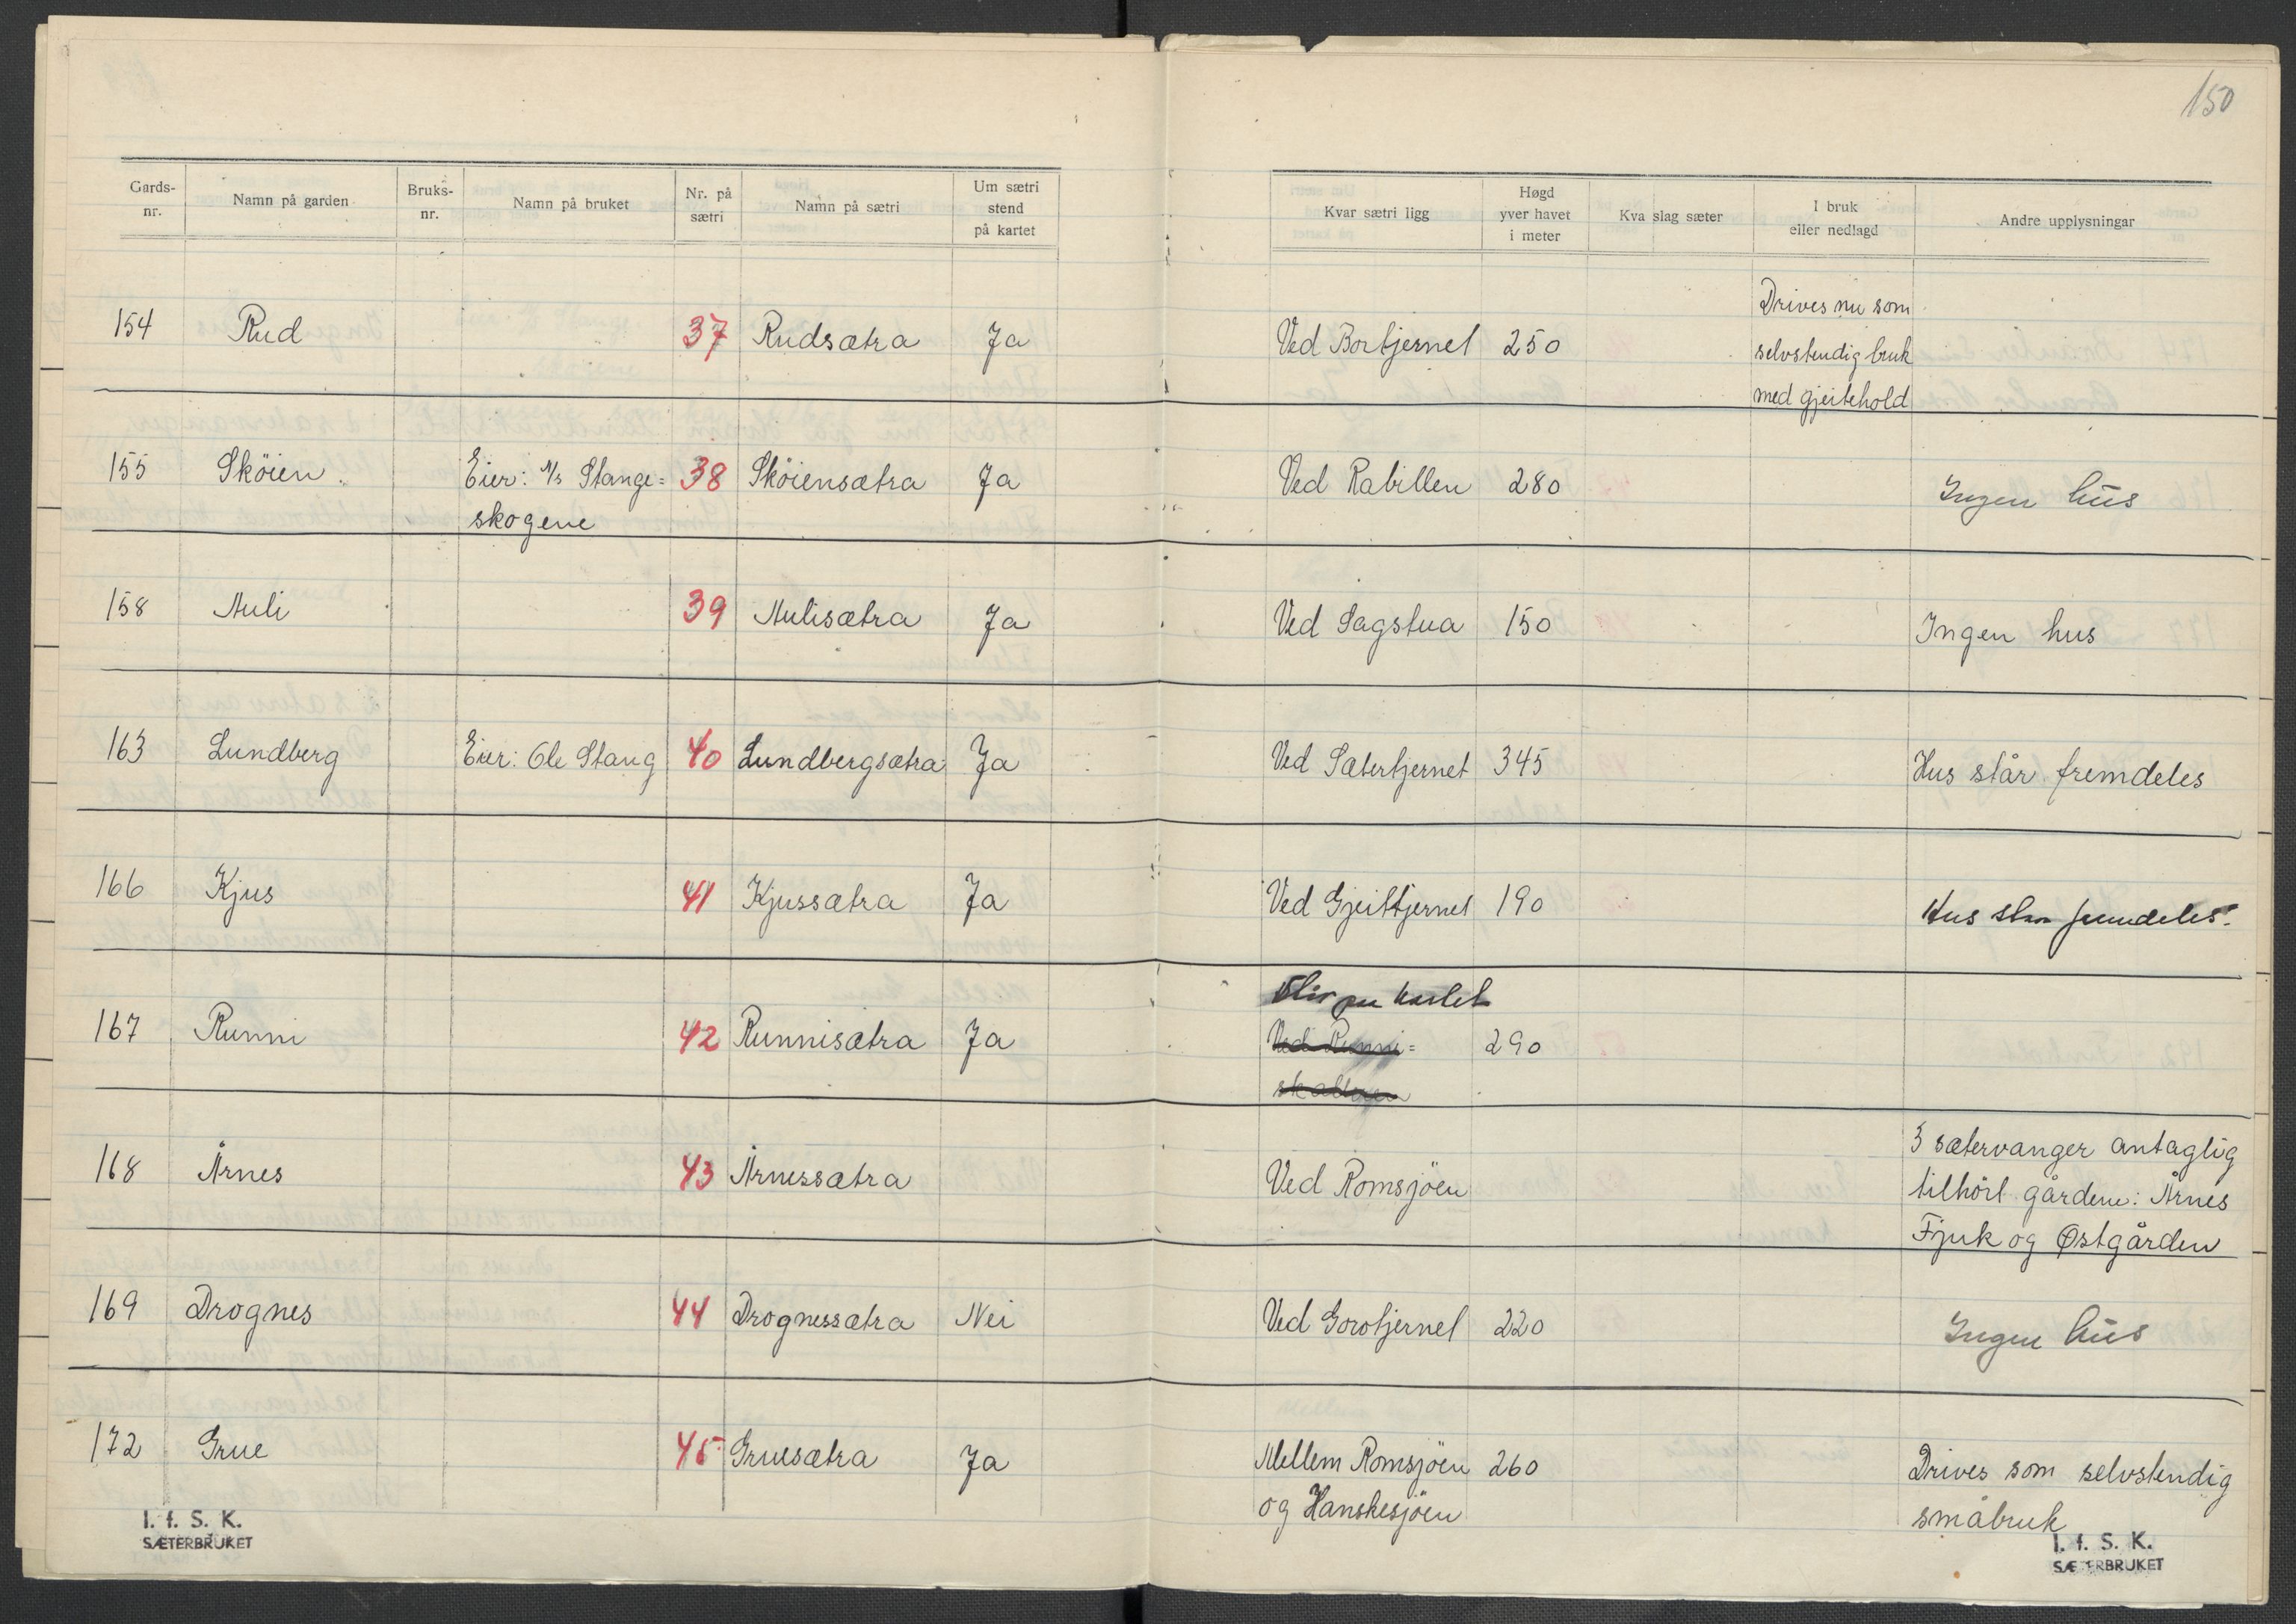 150
Gards-nr. Namn på garden Bruks-nr. Namn på bruket Nr. på sætri Namn på sætri Um sætri stend på kartet Kvar sætri ligg Høgd yver havet i meter Kva slag sæter I bruk eller nedlagd Andre upplysningar
Drives nu som
154 Rud 37 Rudsætra Ja Ved Bortjernet 250 selvstendig bruk
med gjeitehold
155 Sköien. Eier: A/s Stange= 38 Sköiensætra Ja Ved Rabillen 280 Ingen hus
skogene
158 Auli 39 Aulisætra Ja Ved Sagstua 150 Ingen hus
163 Lundberg Eier: Ole Stang 40 Lundbergsætra Ja Ved Sætertjernet 345 Hus står fremdeles
166 Kjus 41 Kjussætra Ja Ved Gjeittjernet 190 Hus står fremdeles.
på kartet
167 Runni 42 Runnisætra Ja Ved Runni= 290
3 sætervanger antaglig
168 Årnes 43 Årnessætra Ved Romsjöen tilhört gårdene: Årnes
Fjuk og Østgården
169 Drognes 44 Drognessætra Nei Ved Gorotjernet 220 Ingen hus
172 Grue 45 Gruesætra Ja Mellem Romsjöen 260 Drives som selvstendig
og Hanskesjöen småbruk
I. f. S. K.
SÆTERBRUKET
I. f. S. K.
SÆTERBRUKET